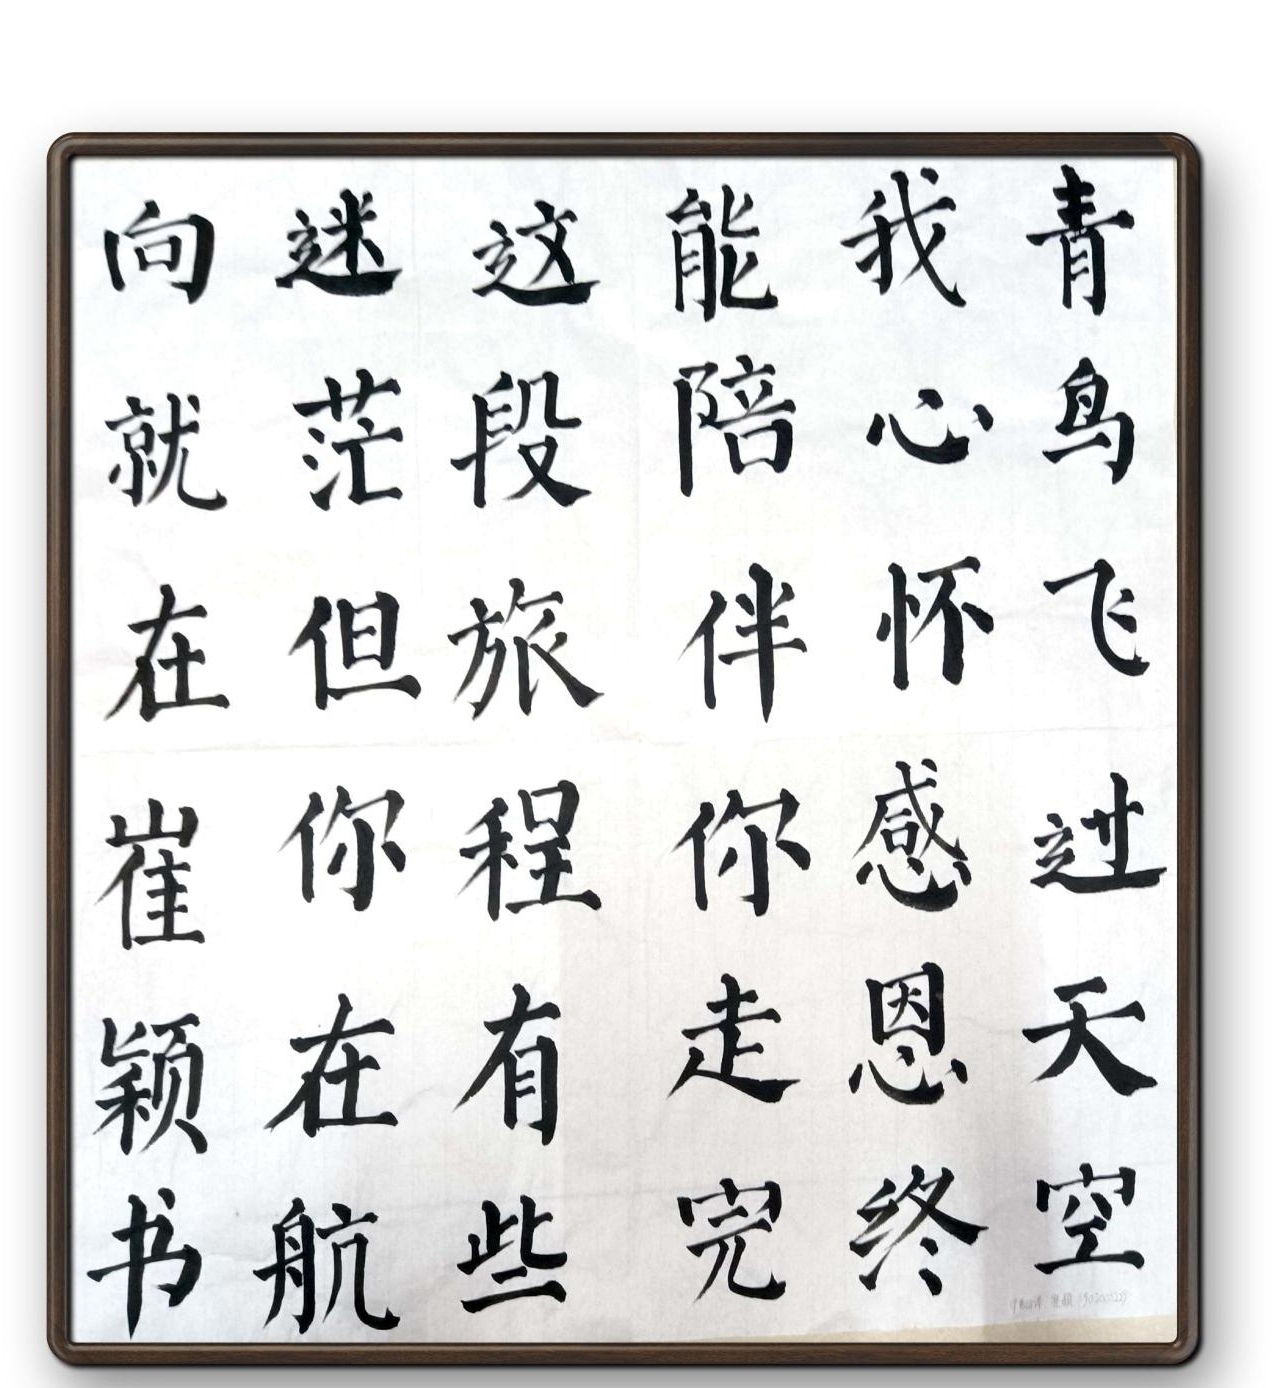 青鸟飞过天空
我心怀感恩终
能陪伴你走完
这段旅程有些
迷茫但你在航
向就在崔颖书